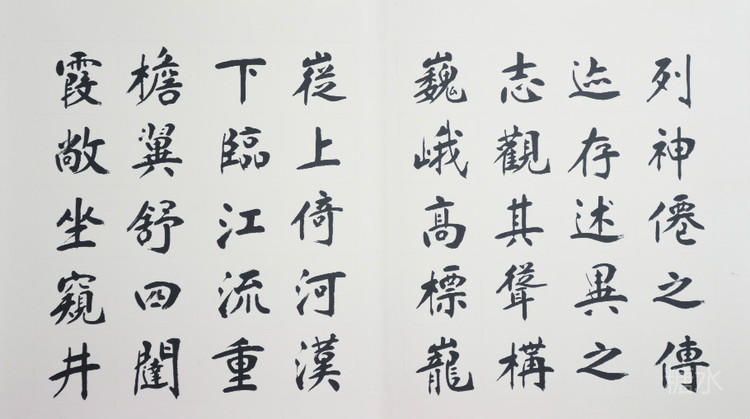 列神僊之傳
迹存述異之
志觀其聳構
巍峨髙標巃
嵸上倚河漢
下臨江流重
檐翼舒四闥
霞敞坐窺井